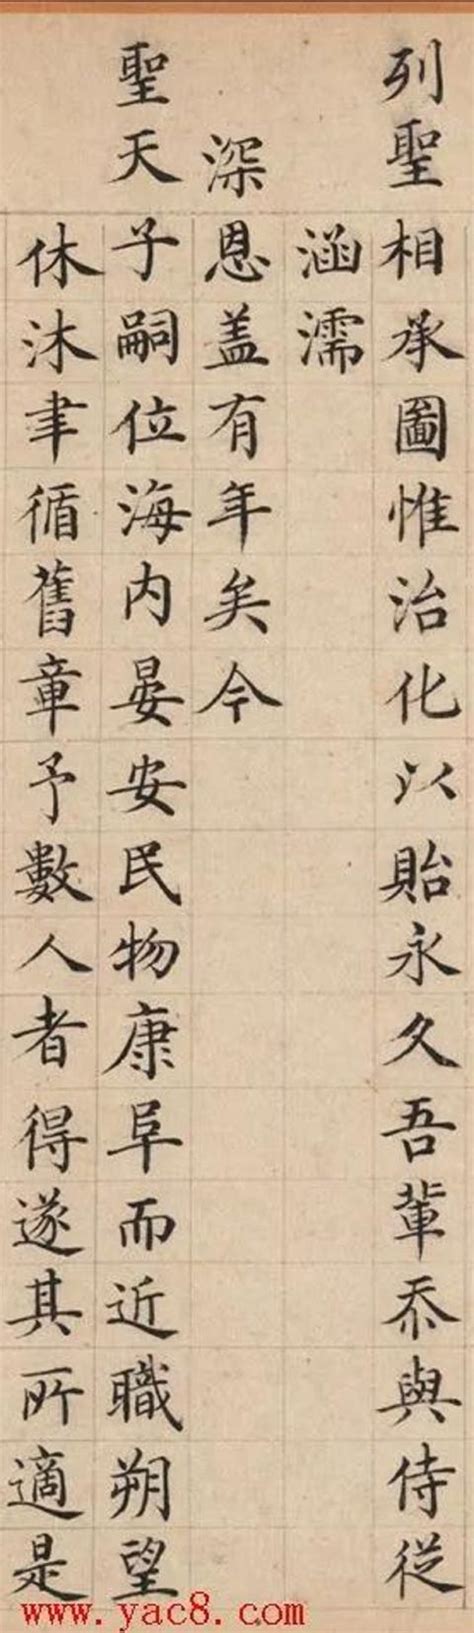 列聖相承圖惟治化以貽永久吾輩忝與侍從
涵濡
深恩盖有年矣今
聖天子嗣位海内晏安民物康阜而近職朔望
休沐聿循舊章予數人者得遂其所適是
www.yac8.com